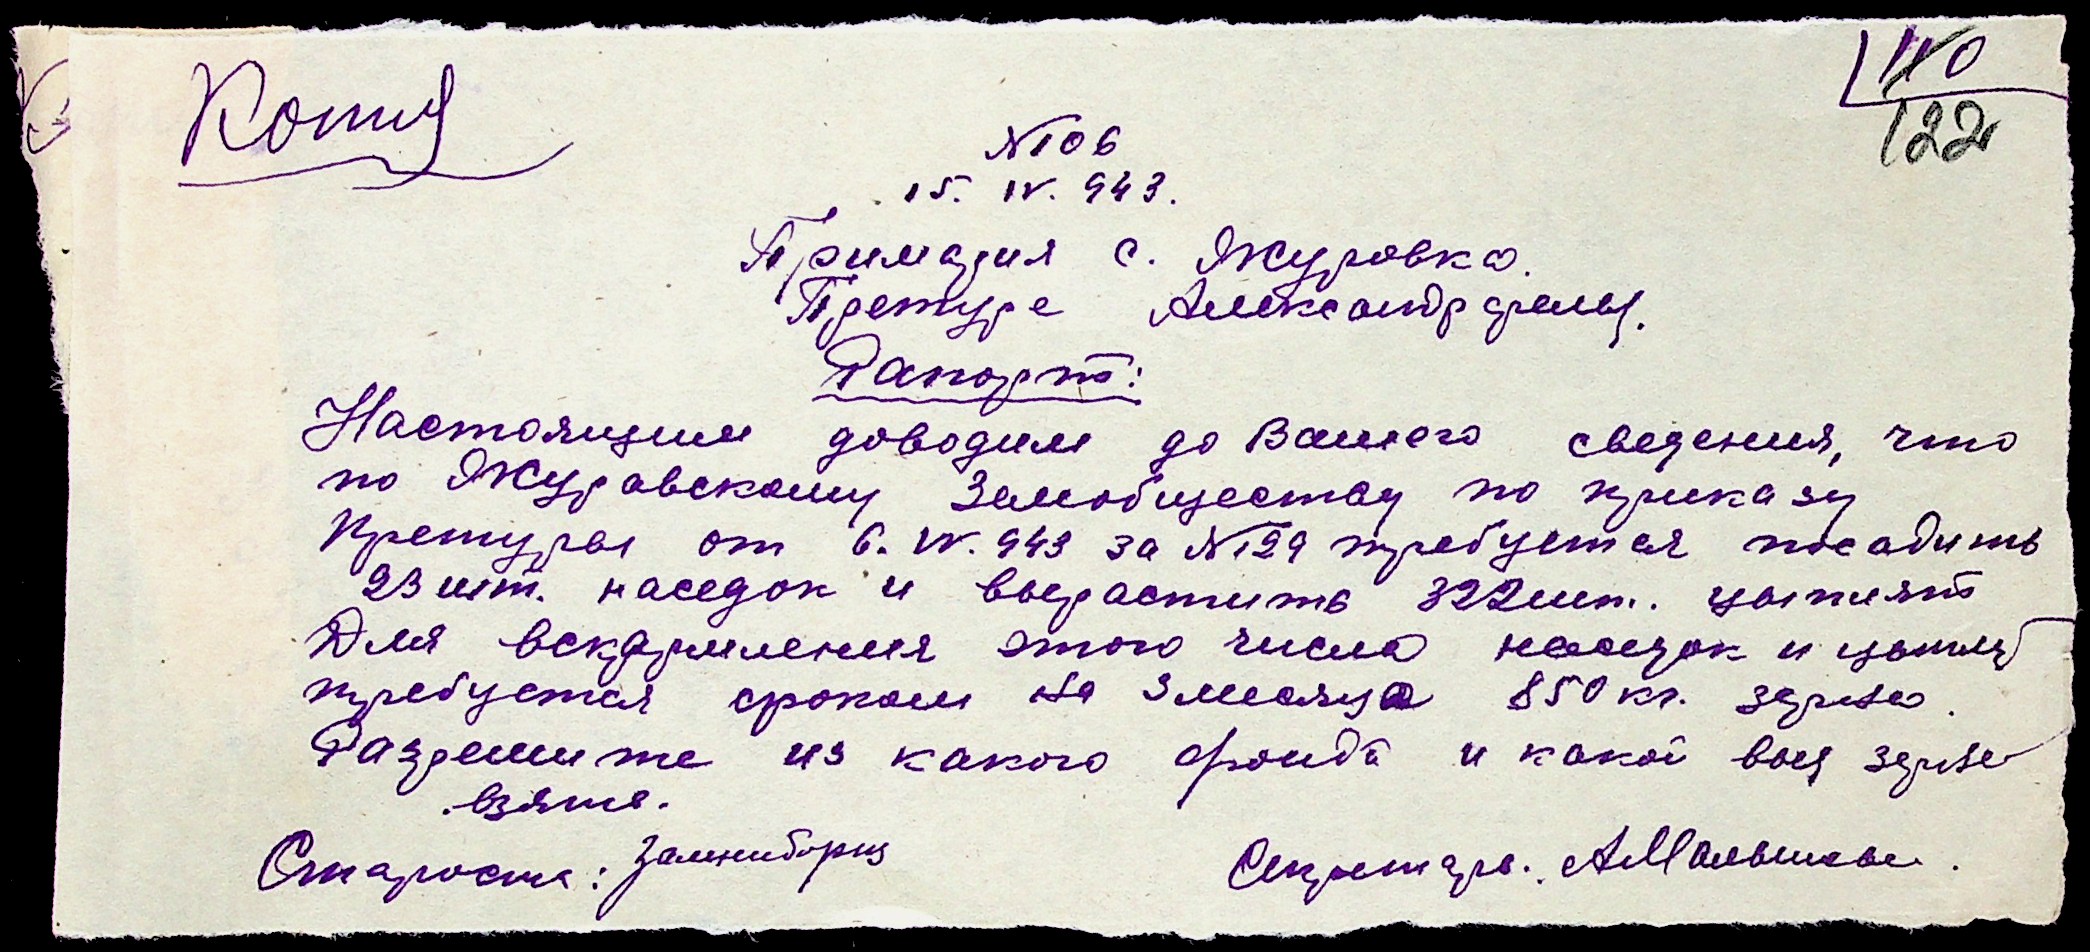 Копия
110
122
№106
15. IV. 943.
Примария с. Журовка.
Претуре Александрфельд.
Рапорт:
Настоящим доводим до Вашего сведения, что
по Журавскому Земобществу по приказу
Претуры от 6. IV. 943 за №129 требуется посадить
23 шт. наседок и вырастить 322 шт. цыплят
Для вскармления этого числа наседок и цыпляд
требуется сроком на 3 месяца 850 кг. зерна.
Разрешите из какого фонда и какой вид зерна
взять.
Староста:
Секретарь.